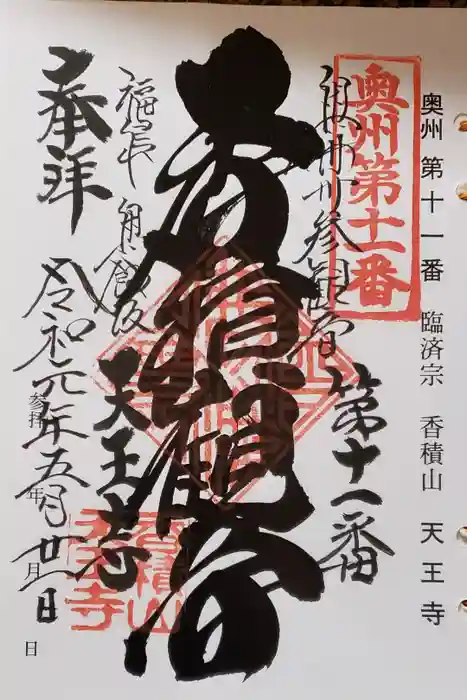 奥州 第十一番 臨済宗 香積山 天王寺
奥州第十一番
州卅参観音 第十一番
観音
福島 飯坂
天王寺
香積山
天王寺
奉拝
令和元年五月廿一日
参拝 年 月 日